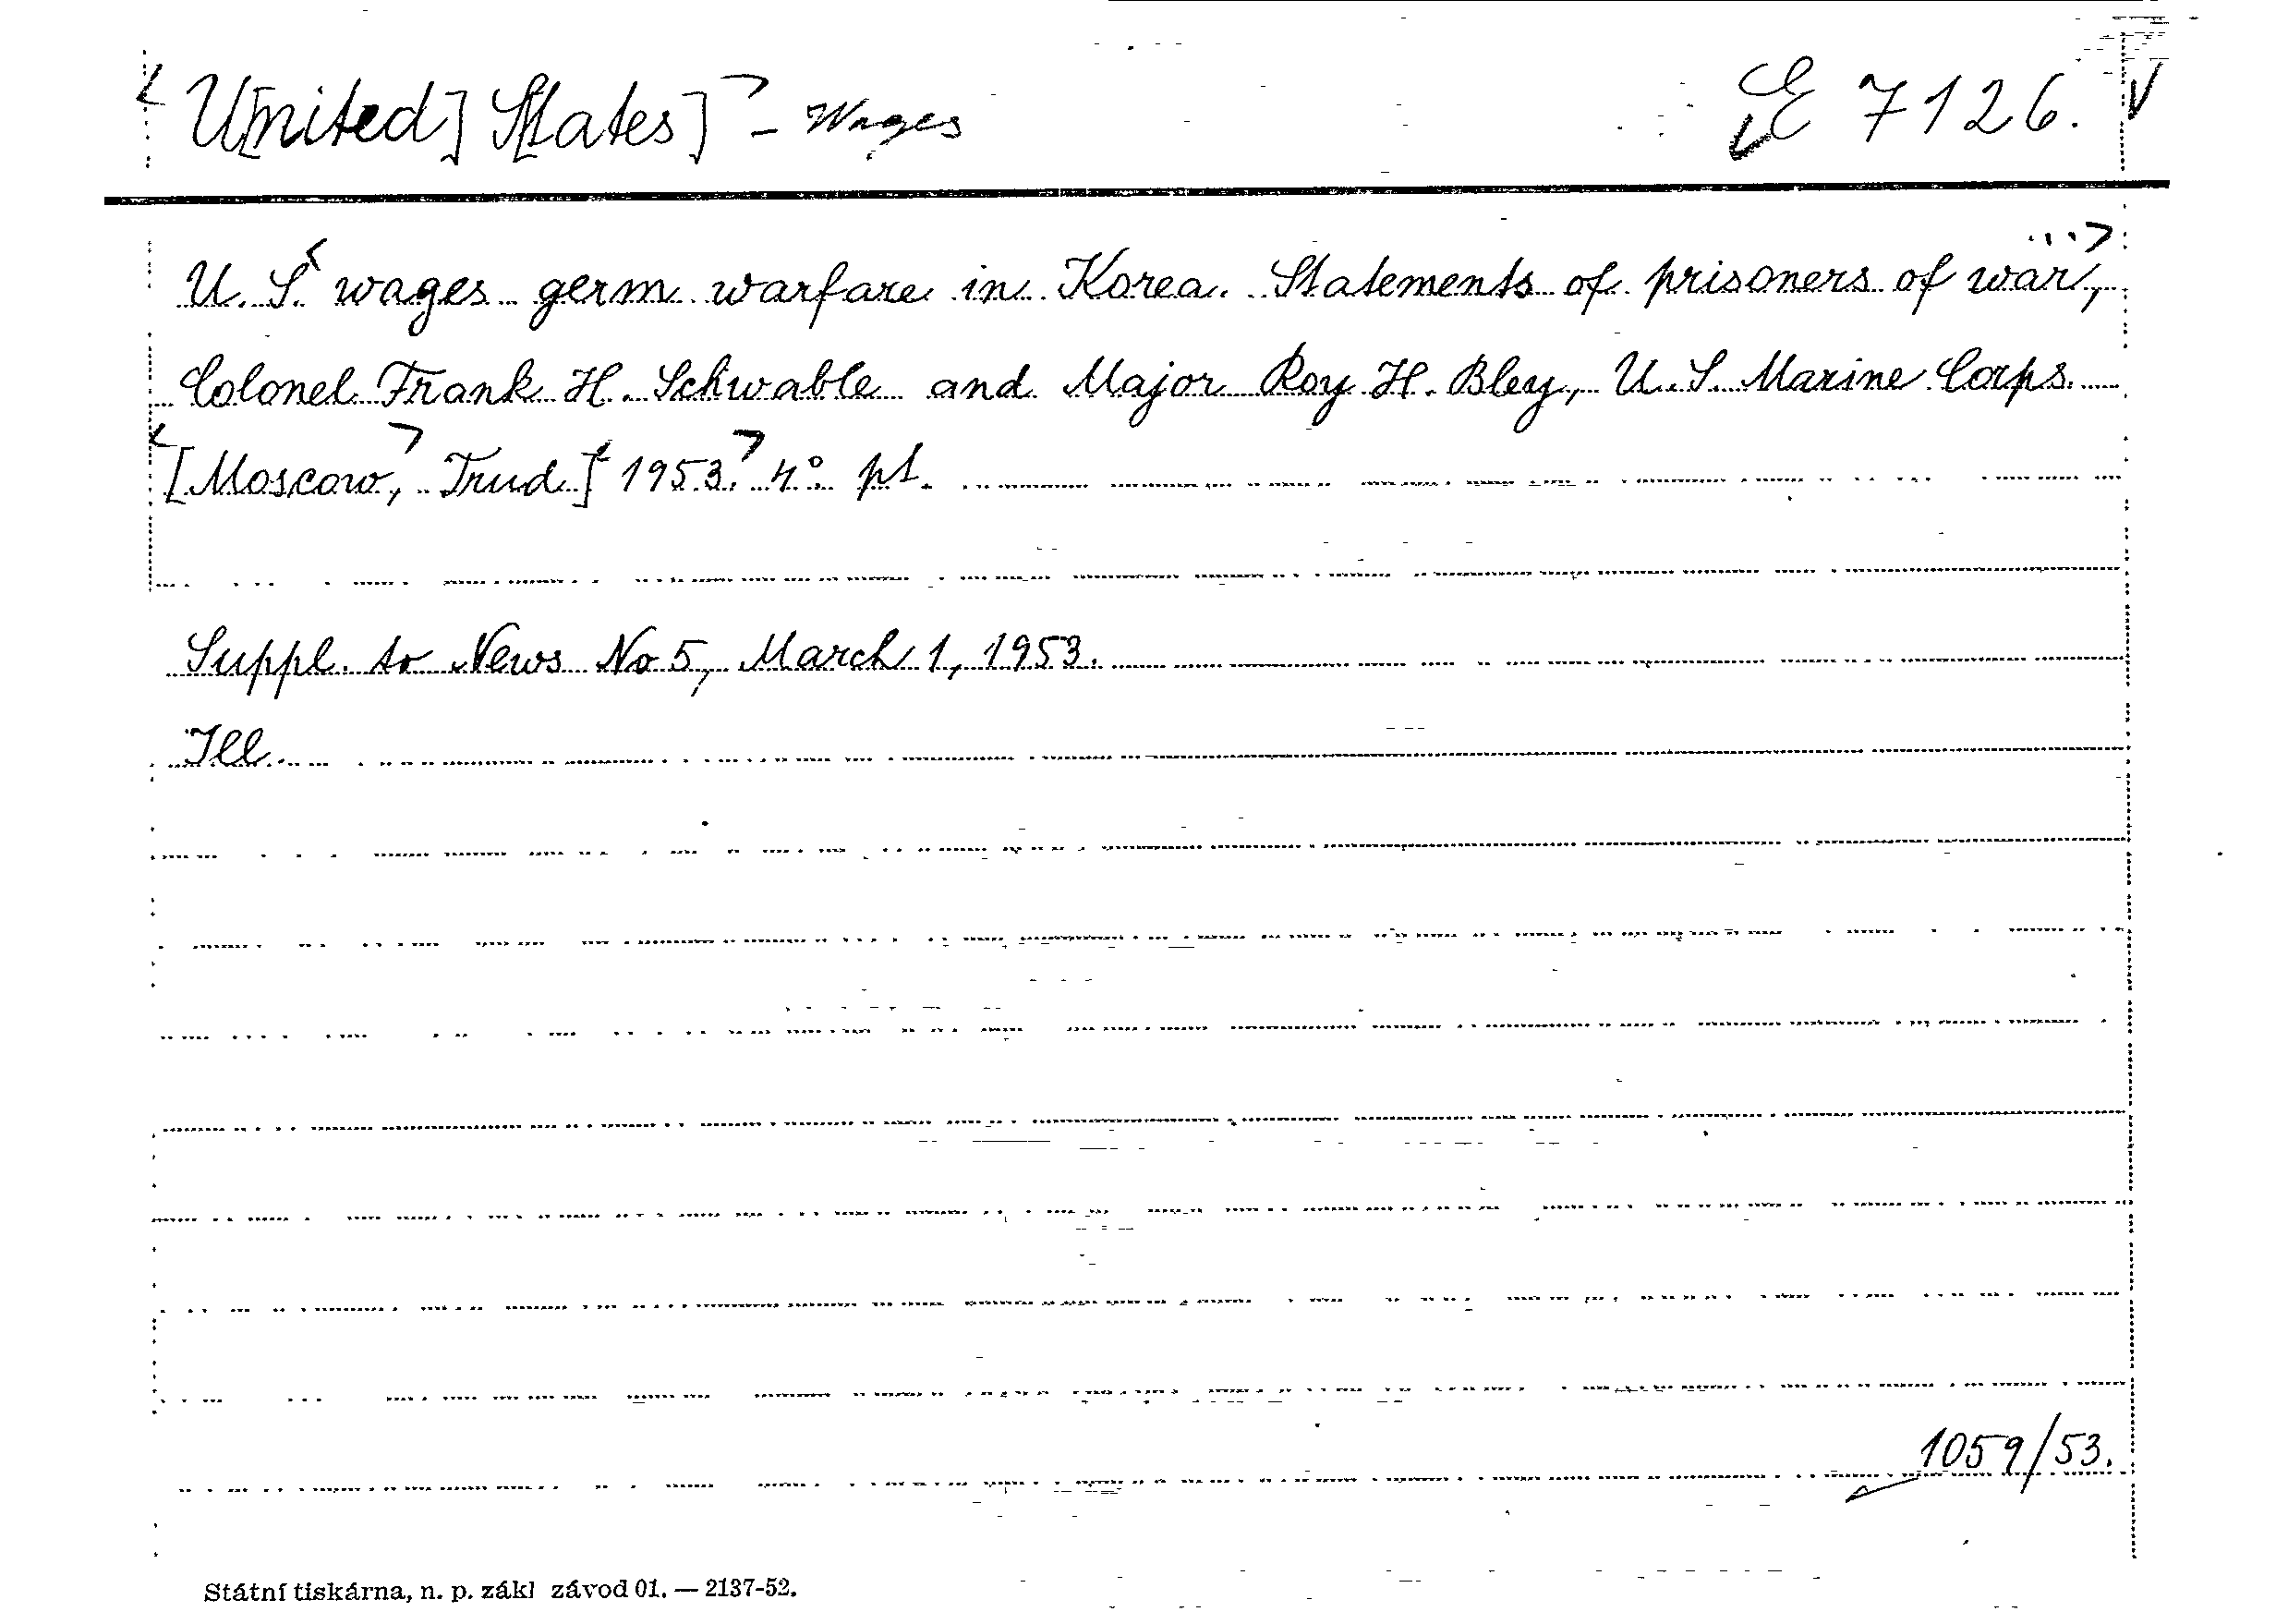 U[nited] S[tates] - Wages E 7126.
U. S. wages germ warfare in Korea. Statements of prisoners of war,
Colonel Frank H. Schwable and Major Roy H. Bley, U. S. Marine Corps.
[Moscow, Trud] 1953. 4°. pt.
Suppl. to News No 5, March 1, 1953.
Ill.
1059/53.
Státní tiskárna, n. p. zákl závod 01. — 2137-52.